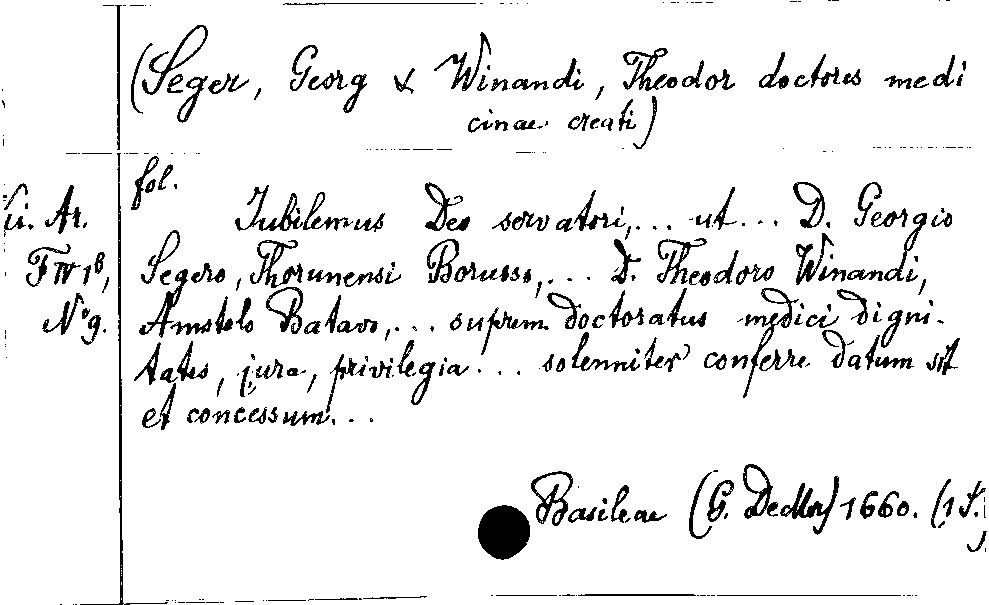 (Seger, Georg & Winandi, Theodor doctores medi
cinae creati)
fol.
Ki. Ar.
F IV 1b,
No 9.
Iubilemus Deo servatori,... ut... D. Georgio
Segero, Thorunensi Borusso,... D. Theodoro Winandi,
Amstelo Batavo,... suprem. doctoratus medici digni-
tates, jura, privilegia... solenniter conferre datum sit
et concessum...
Basileae (G. Decker) 1660. (1